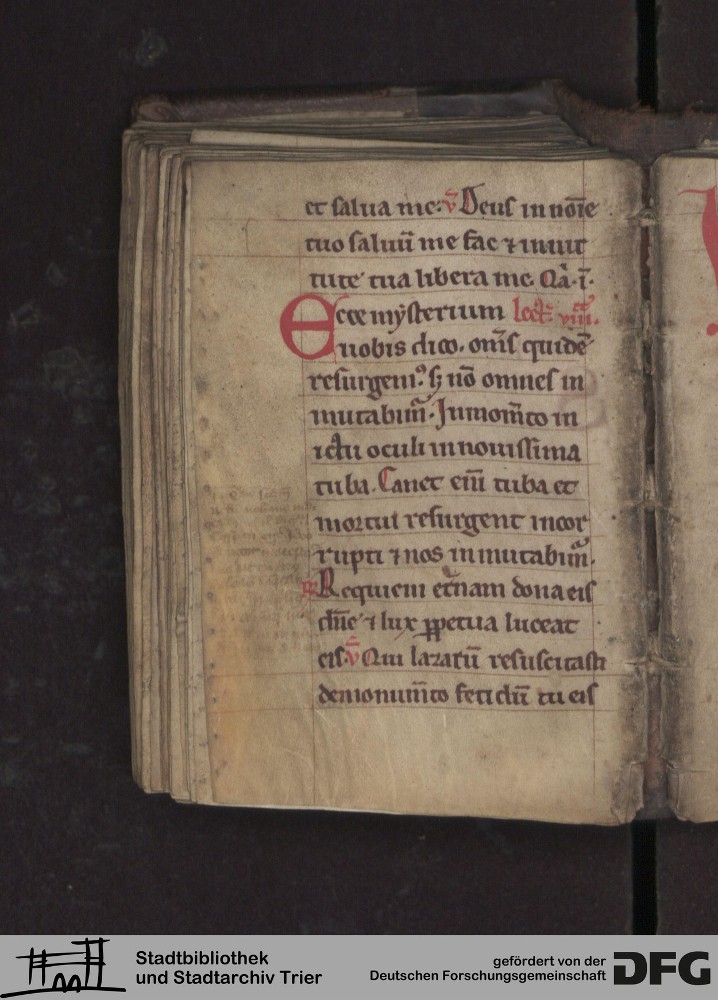 et salua me. v̄ Deus in nōīe
tuo saluū me fac ⁊ in uir
tute tua libera me. Qȧ.ī.
Ecce mẏsterium lect̄. viii.
uobis dico. om̄s quidē
resurgem⁹. ꝫ nō omnes in
mutabim̄. In mom̄to in
ictu oculi in nouissima
tuba. Canet eni̅ tuba et
mortui resurgent incor
rupti ⁊ nos in mutabim̄.
℟ Requiem et̄nam dona eis
dn̄e ⁊ lux ꝑpetua luceat
eis. v̄ Qui lazarū resuscitasti
de monum̄to fetidū tu eis
Stadtbibliothek
und Stadtarchiv Trier
gefördert von der
Deutschen Forschungsgemeinschaft
DFG